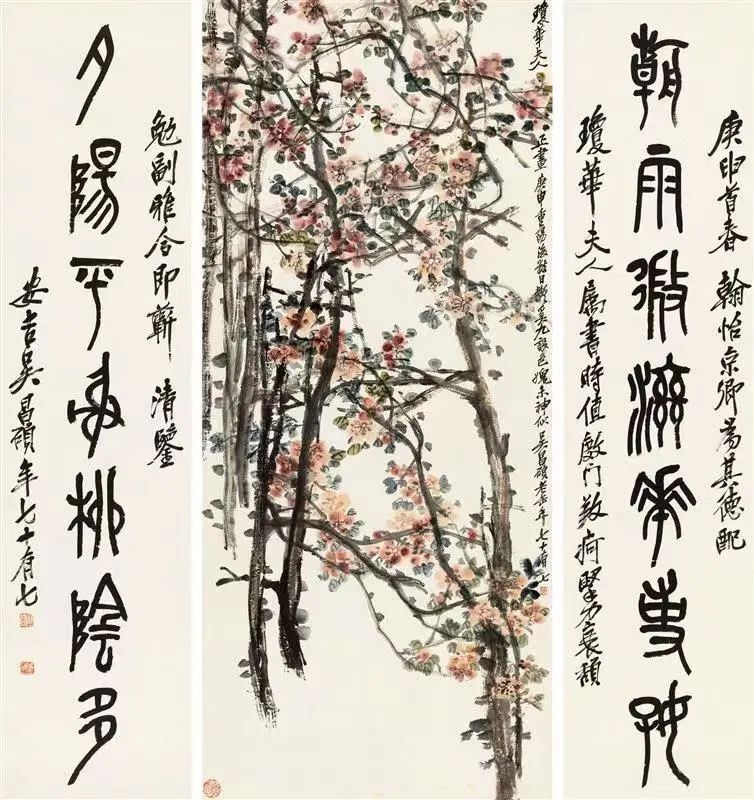 庚申首春 翰怡京卿為其德配
朝雨微滋華事好
瓊華夫人屬書時值門力衰頹
瓊華夫人
正畫庚申重陽後數日設色媿未神似吳昌碩老缶年七十有七
勉副雅令即蘄 清鑒
夕陽平射柳陰多
安吉吳昌碩年七十有七